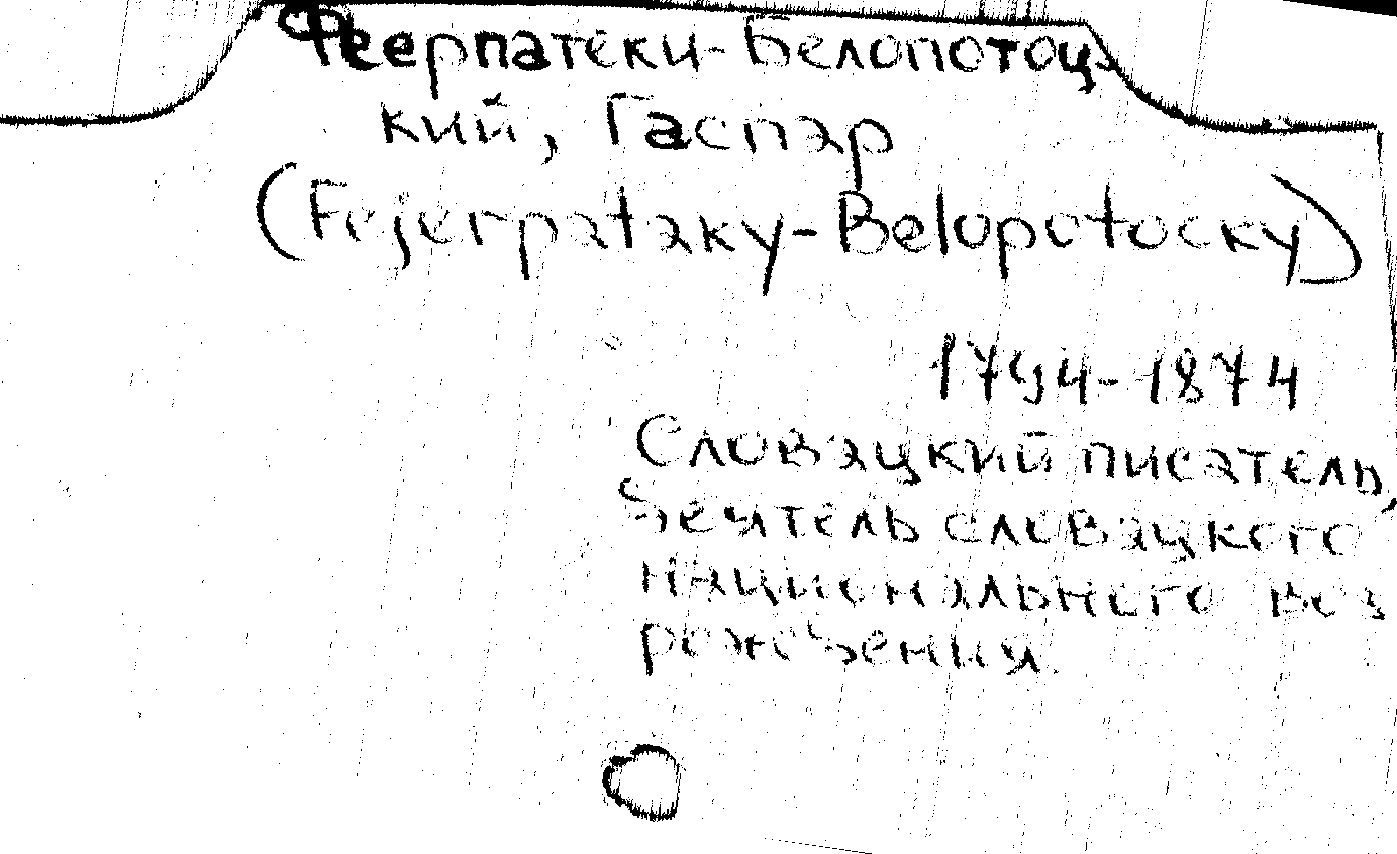 Феерпатеки-Белопотоц-
кий, Гаспар
(Fejerpataky-Belopotocky)
1794-1874
Словацкий писатель,
деятель словацкого
национального воз
рождения.